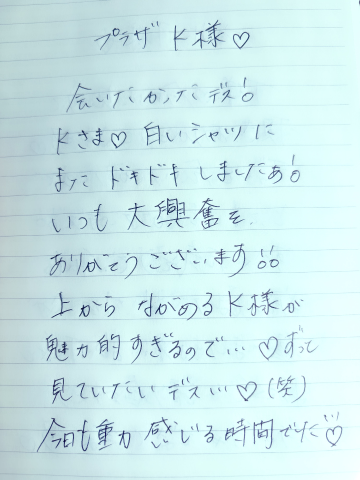 プラザ K様♡
会いたかったデス!
Kさま♡ 白いシャツに
また ドキドキ しましたぁ!
いつも 大興奮を
ありがとうございます!!
上から ながめる K様が
魅力的すぎるので…♡ずっと
見ていたいデス…♡(笑)
今日も重力 感じる時間でした♡